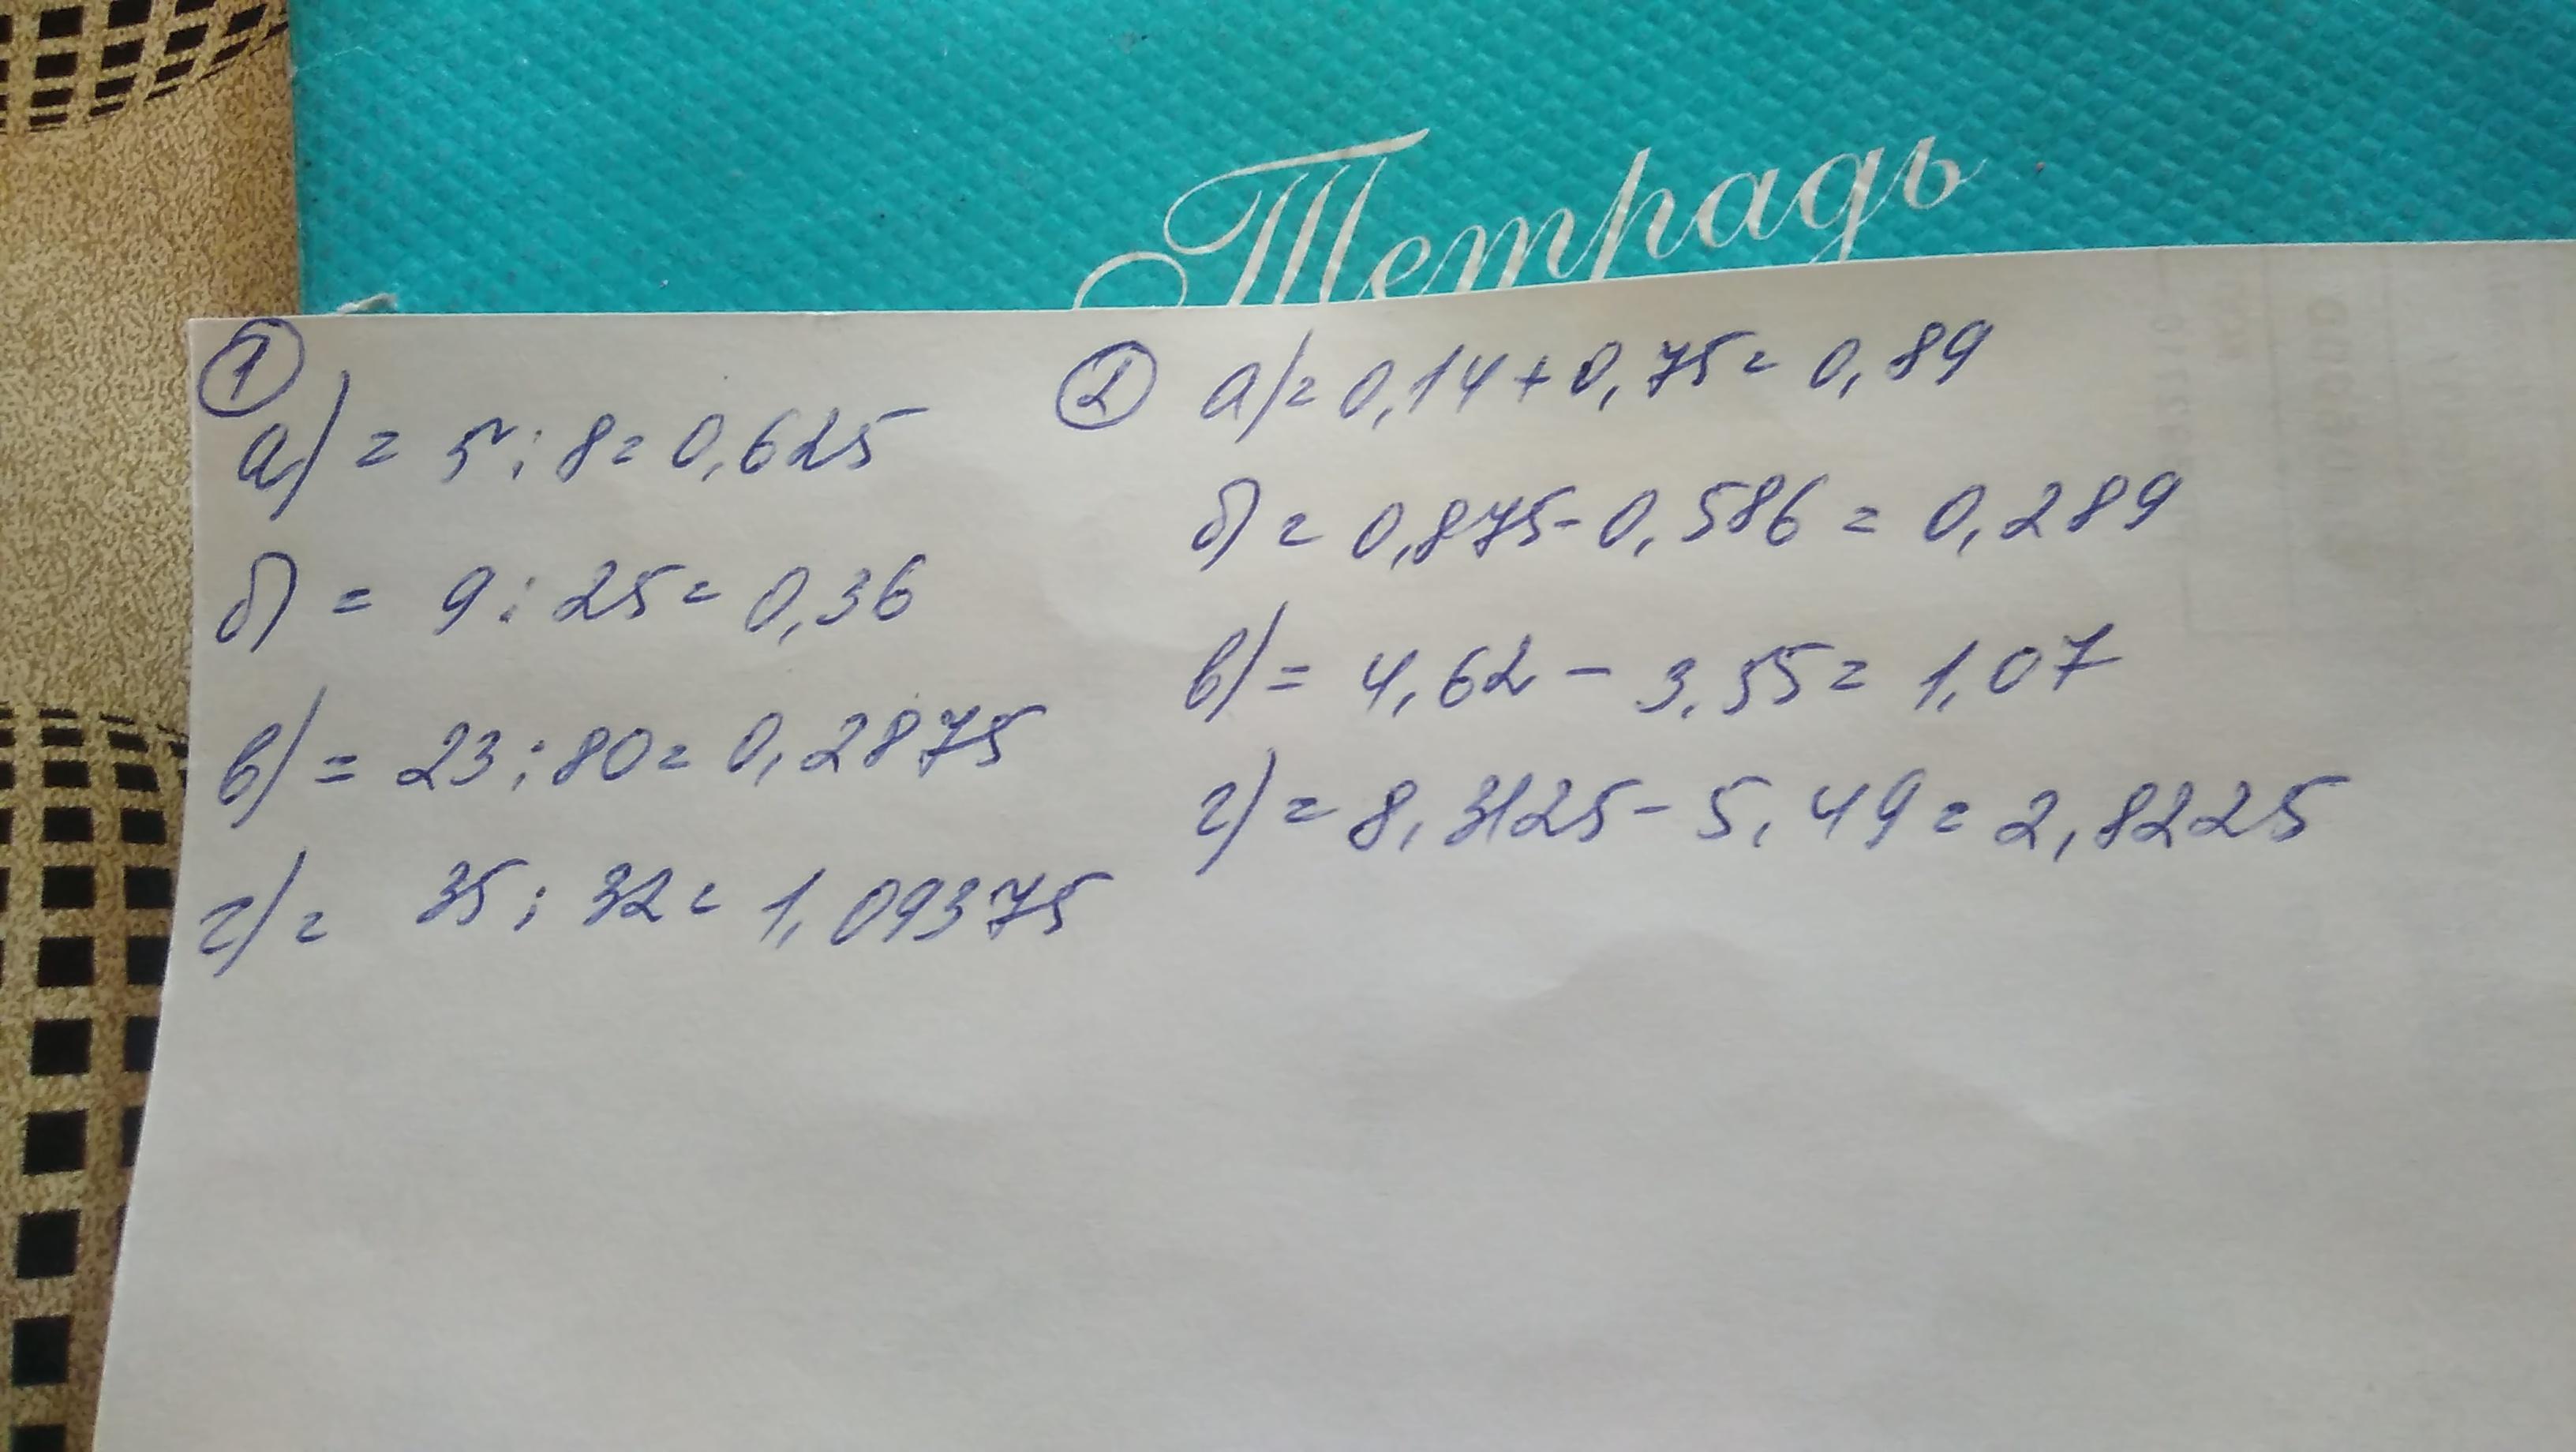 Тетрадь
1
а) = 5 : 8 = 0,625
б) = 9 : 25 = 0,36
в) = 23 : 80 = 0,2875
г) = 35 : 32 = 1,09375
2 а) = 0,14 + 0,75 = 0,89
б) = 0,875 - 0,586 = 0,289
в) = 4,62 - 3,55 = 1,07
г) = 8,3125 - 5,49 = 2,8225